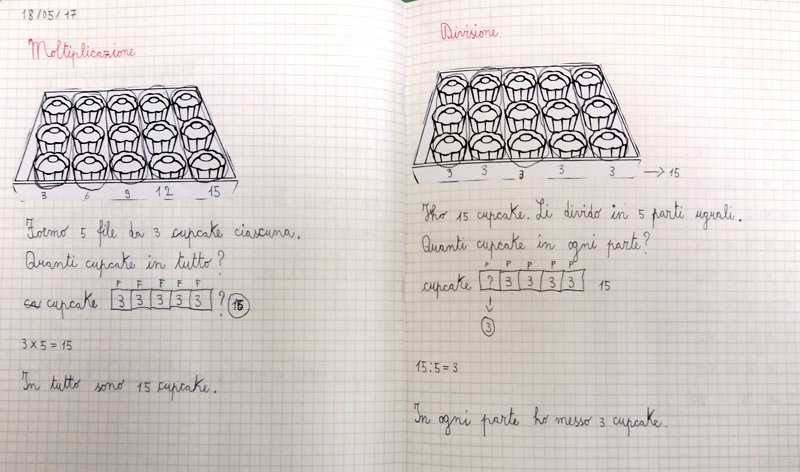 18/05/17
Moltiplicazione
3 6 9 12 15
Formo 5 file da 3 cupcake ciascuna.
Quanti cupcake in tutto?
F F F F F
cupcake 3 3 3 3 3 ? 15
3 x 5 = 15
In tutto sono 15 cupcake.
Divisione
3 3 3 3 3 → 15
Ho 15 cupcake. Li divido in 5 parti uguali.
Quanti cupcake in ogni parte?
P P P P P
cupcake ? 3 3 3 3 15
3
15:5=3
In ogni parte ho messo 3 cupcake.